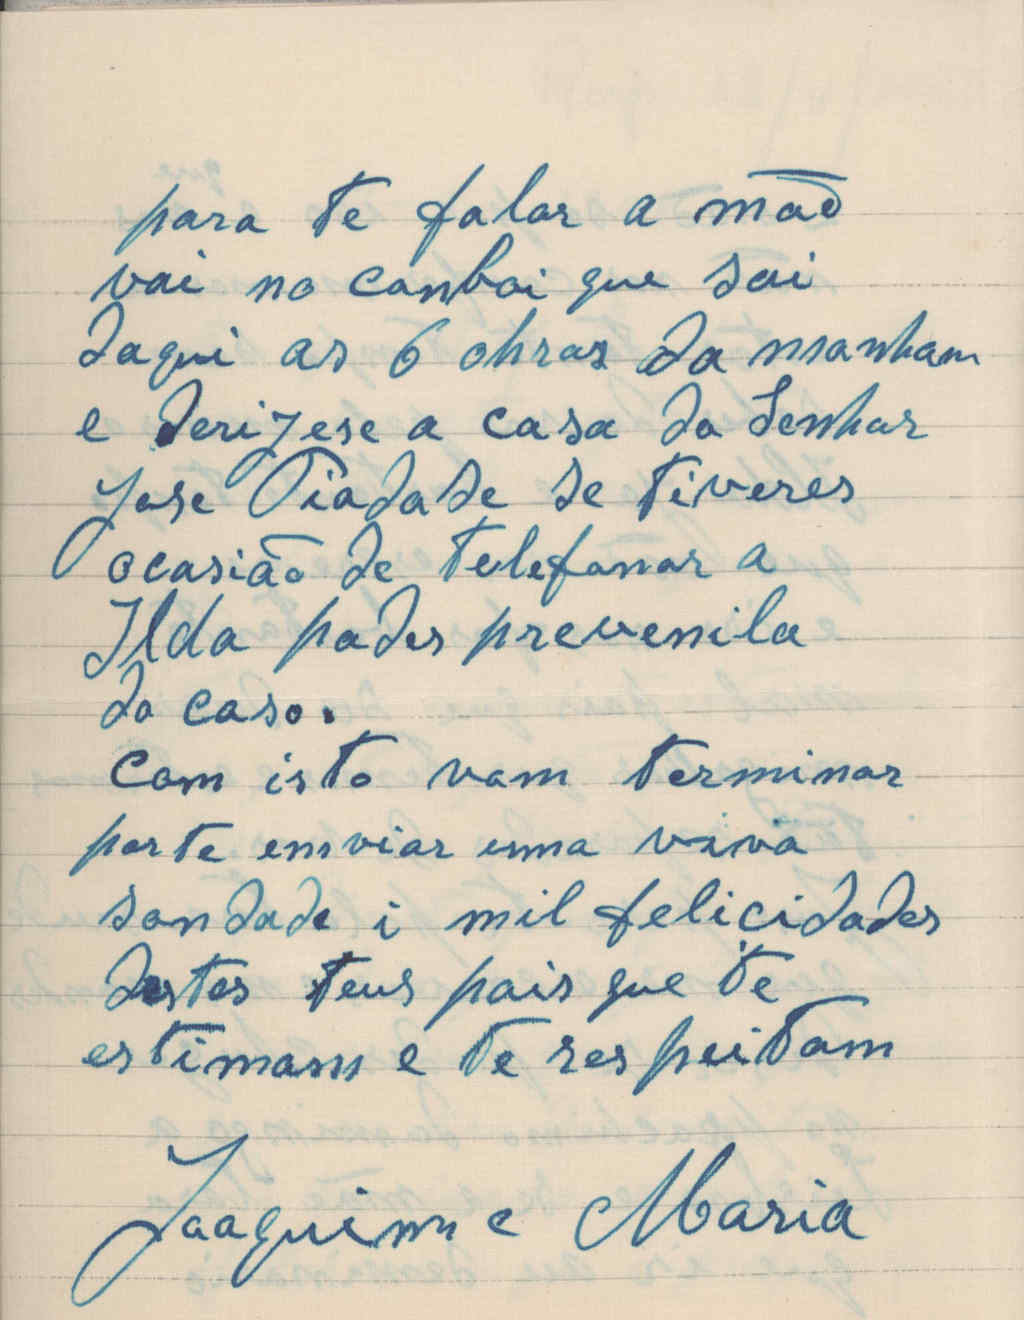 para te falar a mão
vai no canboi que sai
daqui as 6 ohras da manham
e derijese a casa do Senhor
Jose Piadade se tiveres
ocasião de telefonar a
Ilda podes prevenila
do caso.
Com isto vam terminar
por te emviar uma viva
sandade i mil felicidades
destes teus pais que te
estimam e te respeitam
Joaquim e Maria